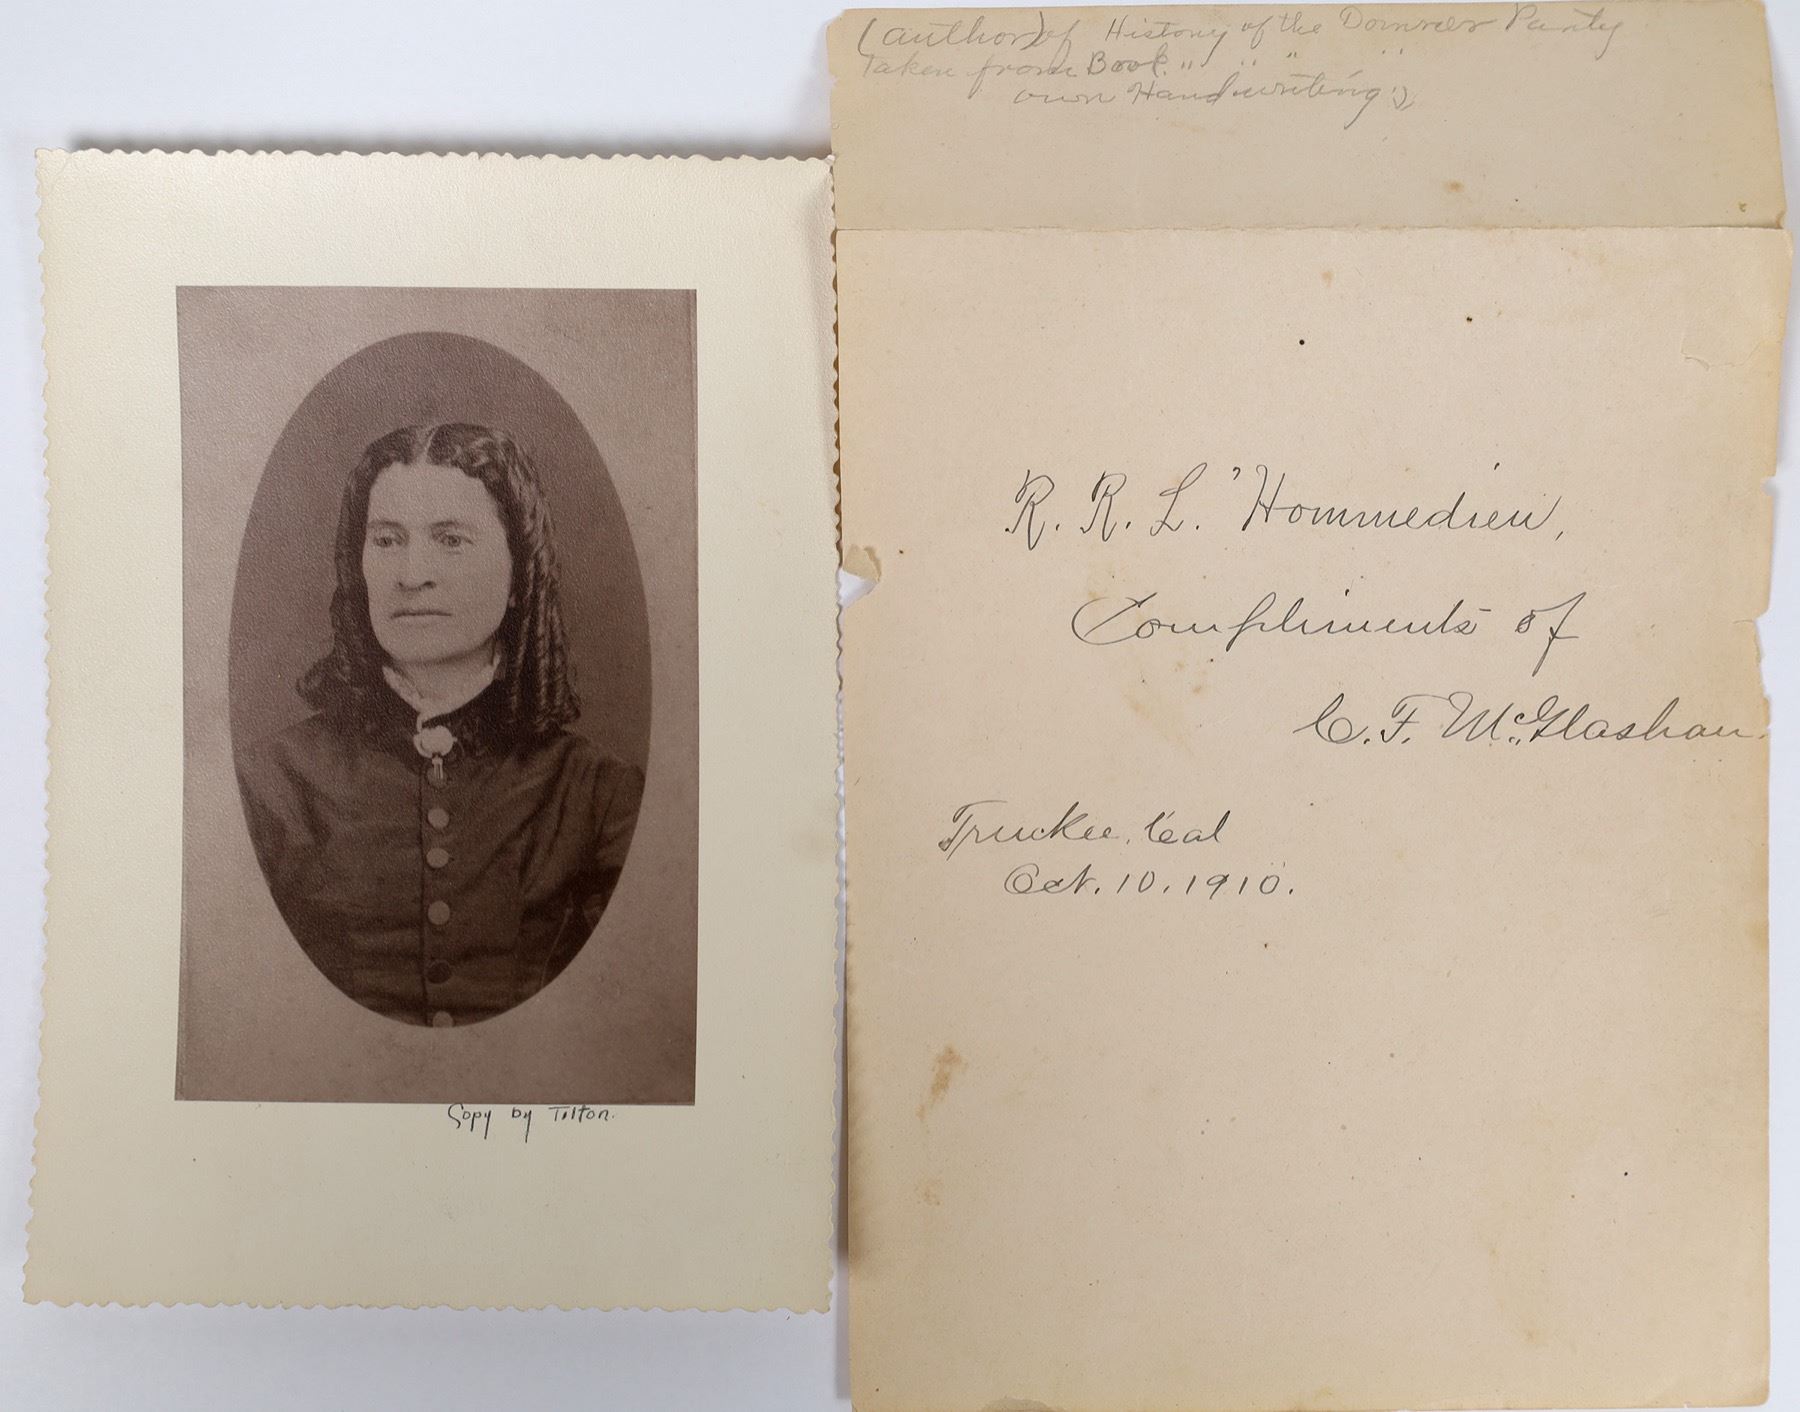 (author) of History of the Donner Party
Taken from Book " " " "
own Handwriting
R. R. L'Hommedieu,
Compliments of
C. F. McGlashan.
Truckee, Cal
Oct. 10. 1910.
Copy by Tilton.